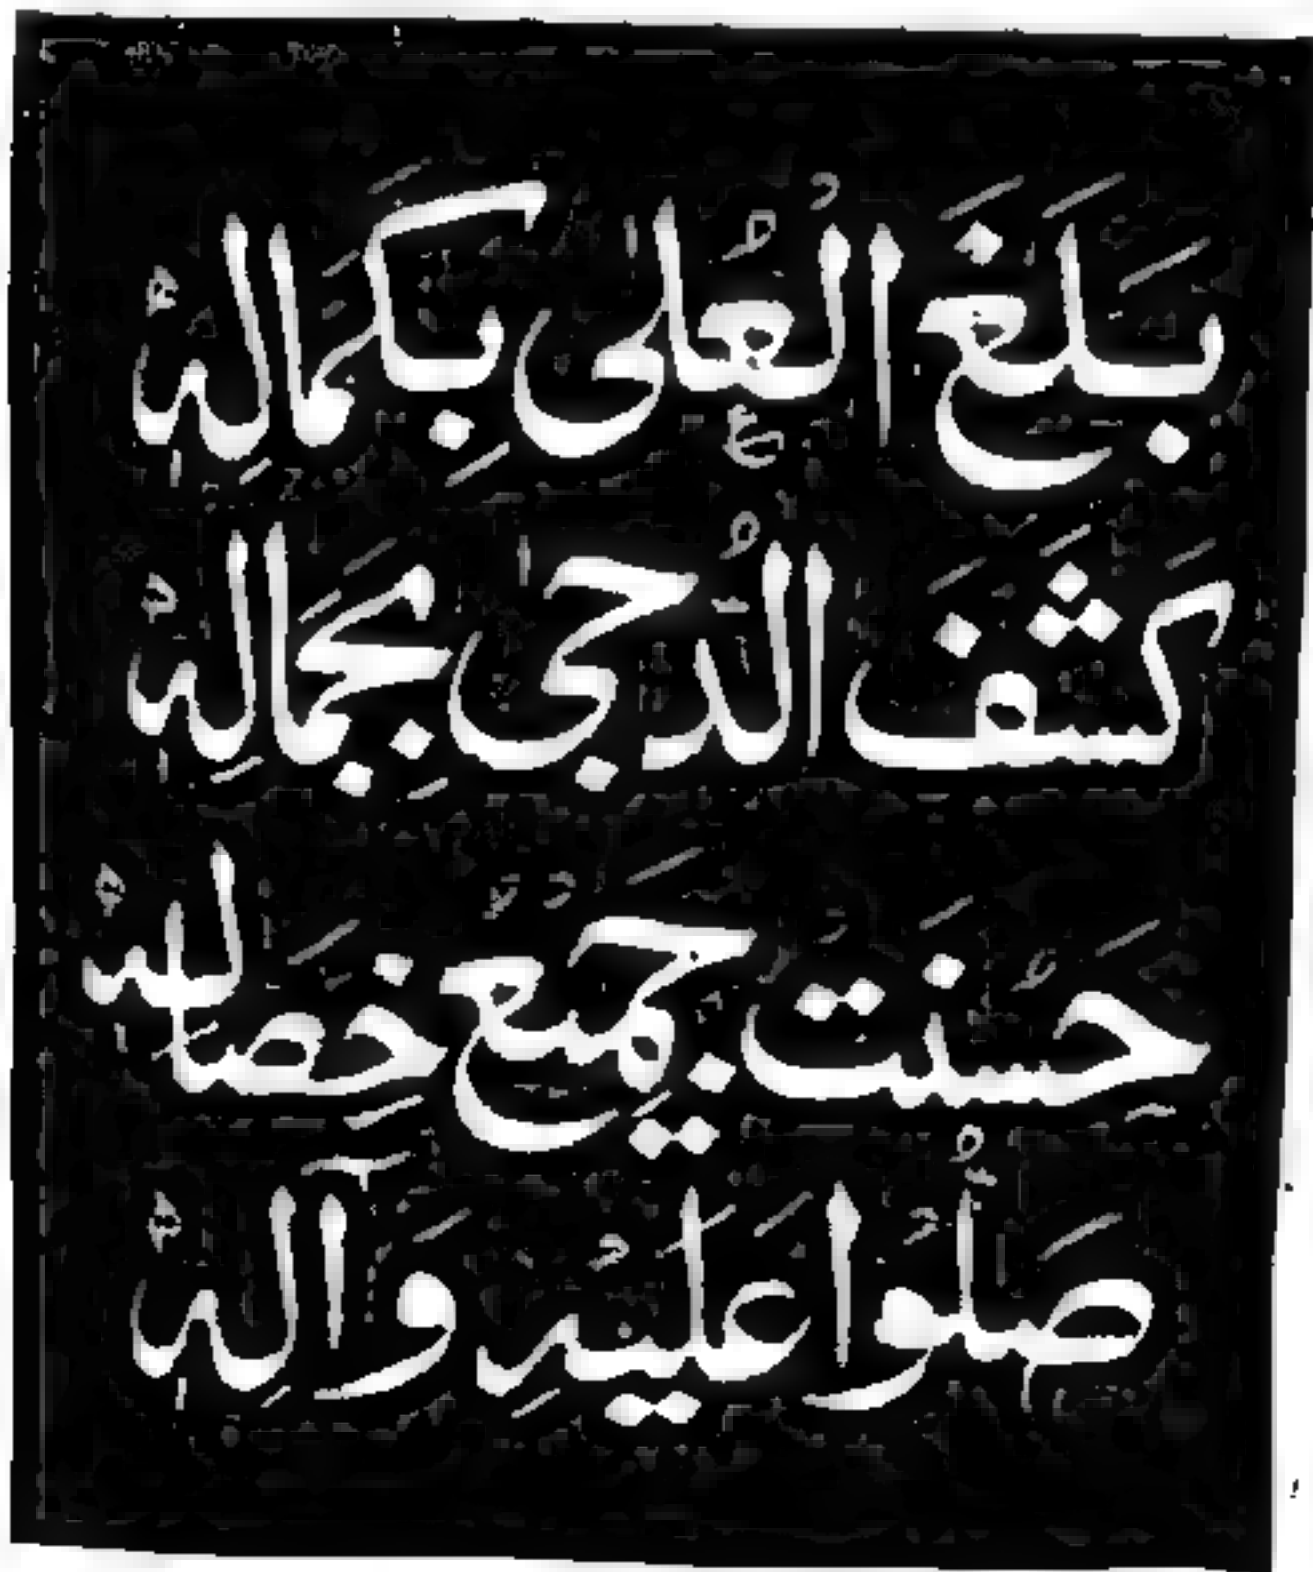 بَلَغَ الْعُلٰی بِکَمَالِهٖ
کَشَفَ الدُّجٰی بِجَمَالِهٖ
حَسُنَتْ جَمِیْعُ خِصَالِهٖ
صَلُّوْا عَلَیْهِ وَآلِهٖ